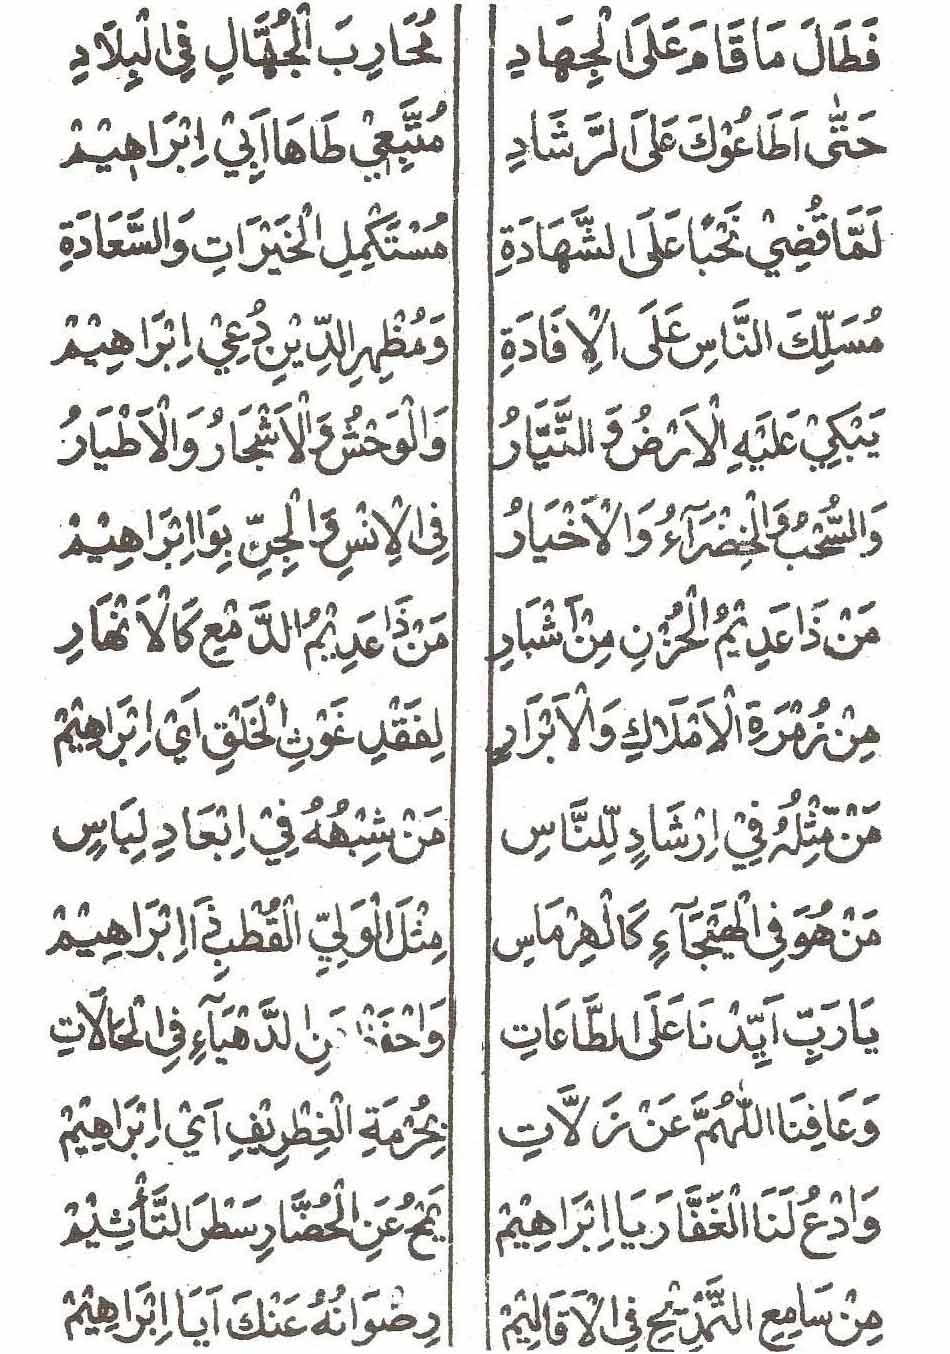 فَطَالَ مَا قَامَ عَلَى الْجِهَادِ مُحَارِبَ الْجُهَّالِ فِي الْبِلَادِ
حَتَّى اَطَاعُوْكَ عَلَى الرَّشَادِ مُتَّبِعِيْ طَاهَا اَبِيْ اِبْرَاهِيْمْ
لَمَّا قُضِيْ نَحْبًا عَلَى الشَّهَادَةِ مُسْتَكْمِلِ الْخَيْرَاتِ وَالسَّعَادَةِ
مُسَلِّكَ النَّاسِ عَلَى الْاِفَادَةِ وَمُظْهِرِ الدِّيْنِ دُعِيْ اِبْرَاهِيْمْ
يَبْكِيْ عَلَيْهِ الْاَرْضُ وَالتَّيَّارُ وَالْوَحْشُ وَالْاَشْجَارُ وَالْاَطْيَارُ
وَالسُّحْبُ وَالْخِضْرَآءُ وَالْاَخْيَارُ فِى الْاِنْسِ وَالْجِنِّ بِوَا اِبْرَاهِيْمْ
مَنْ ذَا عَدِيْمُ الْحُزْنِ مِنْ اَشْبَارِ مَنْ ذَا عَدِيْمُ الدَّمْعِ كَالْاَنْهَارِ
مِنْ زُمْرَةِ الْاَمْلَاكِ وَالْاَبْرَارِ لِفَقْدِ غَوْثِ الْخَلْقِ اَيْ اِبْرَاهِيْمْ
مَنْ مِّثْلُهُ فِيْ اِرْشَادٍ لِّلنَّاسِ مَنْ شِبْهُهُ فِيْ اِبْعَادِ لِبَاسٍ
مَنْ هُوَ فِى الْهَيْجَآءِ كَالْهِرْمَاسِ مِثْلَ الْوَلِيِّ الْقُطْبِ ذَا اِبْرَاهِيْمْ
يَا رَبِّ اَيِّدْنَا عَلَى الطَّاعَاتِ الدَّهْيَآءِ فِى الْحَالَاتِ
وَعَافِنَا اللّٰهُمَّ عَنْ زَلَّاتِ بِحُرْمَةِ الْغِطْرِيْفِ اَيْ اِبْرَاهِيْمْ
وَادْعُ لَنَا الْغَفَّارَ يَا اِبْرَاهِيْمْ يَمْحُ عَنِ الْحُضَّارِ سَطْرَ التَّأْثِيْمْ
مِنْ سَامِعِ التَّمْدِيْحِ فِى الْاَقَالِيْمْ رِضْوَانُهُ عَنْكَ اَيَا اِبْرَاهِيْمْ